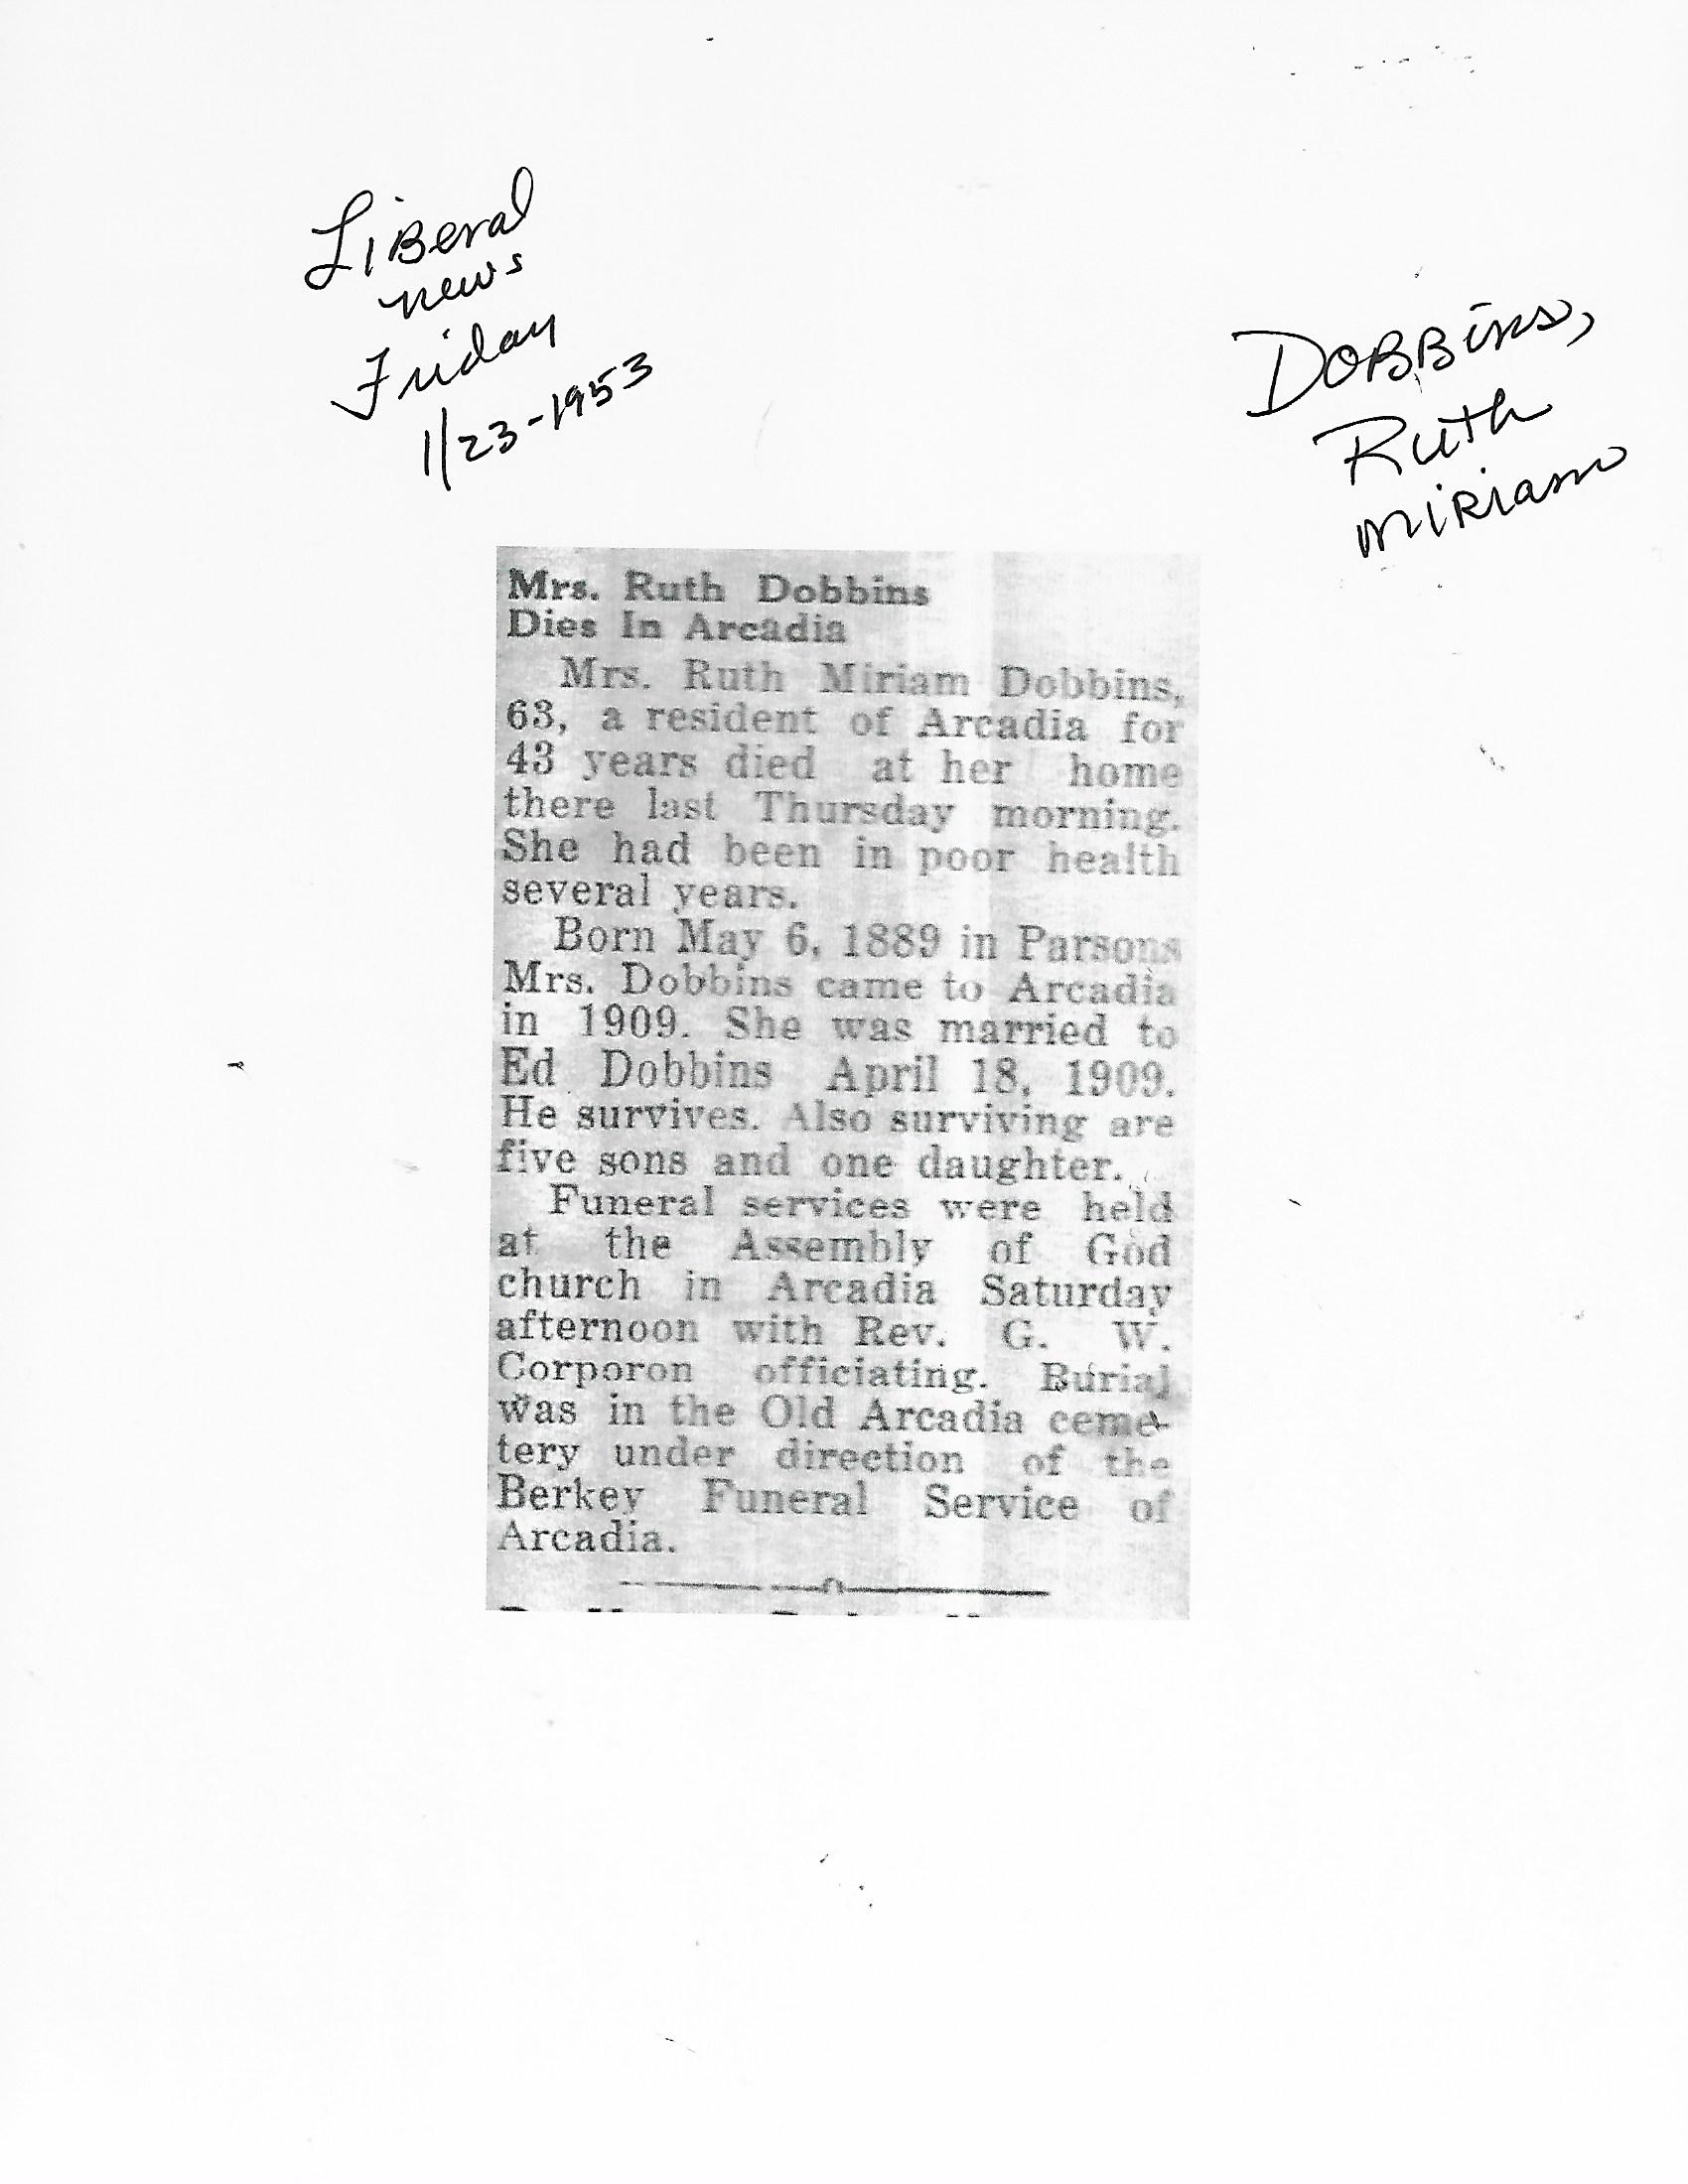 LIBeral
news
Friday
1/23-1953
DOBBins,
Ruth
MIRIam
Mrs. Ruth Dobbins
Dies In Arcadia
Mrs. Ruth Miriam Dobbins,
63, a resident of Arcadia for
43 years died at her home
there last Thursday morning.
She had been in poor health
several years.
Born May 6, 1889 in Parsons
Mrs. Dobbins came to Arcadia
in 1909. She was married to
Ed Dobbins April 18, 1909.
He survives. Also surviving are
five sons and one daughter.
Funeral services were held
at the Assembly of God
church in Arcadia Saturday
afternoon with Rev. G. W.
Corporon officiating. Burial
was in the Old Arcadia ceme-
tery under direction of the
Berkey Funeral Service of
Arcadia.